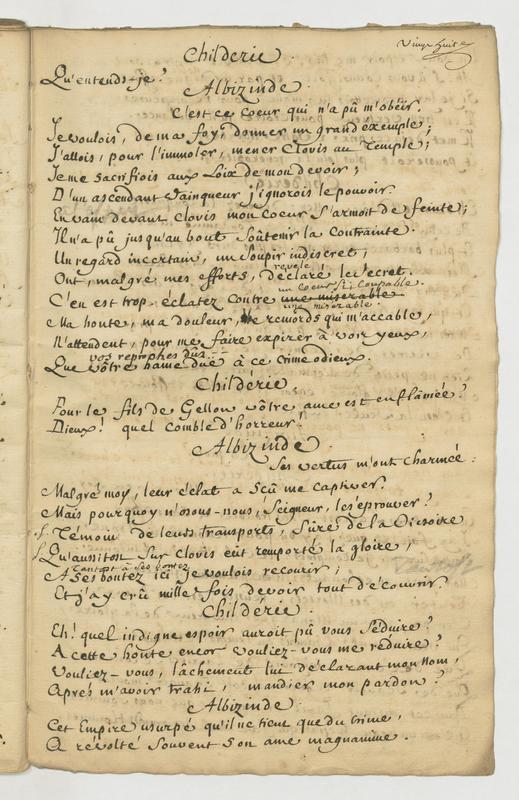 Vingt huit
Childeric.
Qu'entends-je?
Albizinde.
C'est ce coeur qui n'a pû m'obéir.
Je voulois, de ma foy, donner un grand éxemple;
J'allois, pour l'immoler, mener Clovis au Temple;
Je me sacrifiois aux Loix de mon devoir;
D'un ascendant vainqueur j'ignorois le pouvoir.
En vain devant Clovis mon coeur s'armoit de feinte;
Il n'a pû jusqu'au bout soûtenir la contrainte.
Un regard incertain, un soupir indiscret,
revele
Ont, malgré mes efforts, déclaré le secret.
un coeur si coupable.
C'en est trop. éclatez contre une miserable
une miserable.
Ma honte, ma douleur, le remords qui m'accable,
N'attendent, pour me faire expirer à vos yeux,
vos reproches dus
Que vôtre haine due à ce crime odieux.
Childéric.
Pour le fils de Gellon vôtre ame est enflâmée?
Dieux! quel comble d'horreur!
Albizinde.
Ses vertus m'ont charmée:
Malgré moy, leur éclat a sçû me captiver.
Mais pourquoy n'osons-nous, Seigneur, les éprouver?
Témoin de leurs transports, sûre de la Victoire
Qu'aussitôt sur Clovis eût remporté la gloire,
Tantost à ses bontez
A ses bontez ici je voulois recourir;
Et j'ay crû mille fois devoir tout découvrir.
Childéric.
Eh! quel indigne espoir auroit pû vous séduire?
A cette honte encor vouliez-vous me réduire?
Vouliez-vous, lâchement lui déclarant mon nom,
Après m'avoir trahi, mandier mon pardon?
Albizinde.
Cet Empire usurpé qu'il ne tient que du crime,
A révolté souvent son ame magnanime.